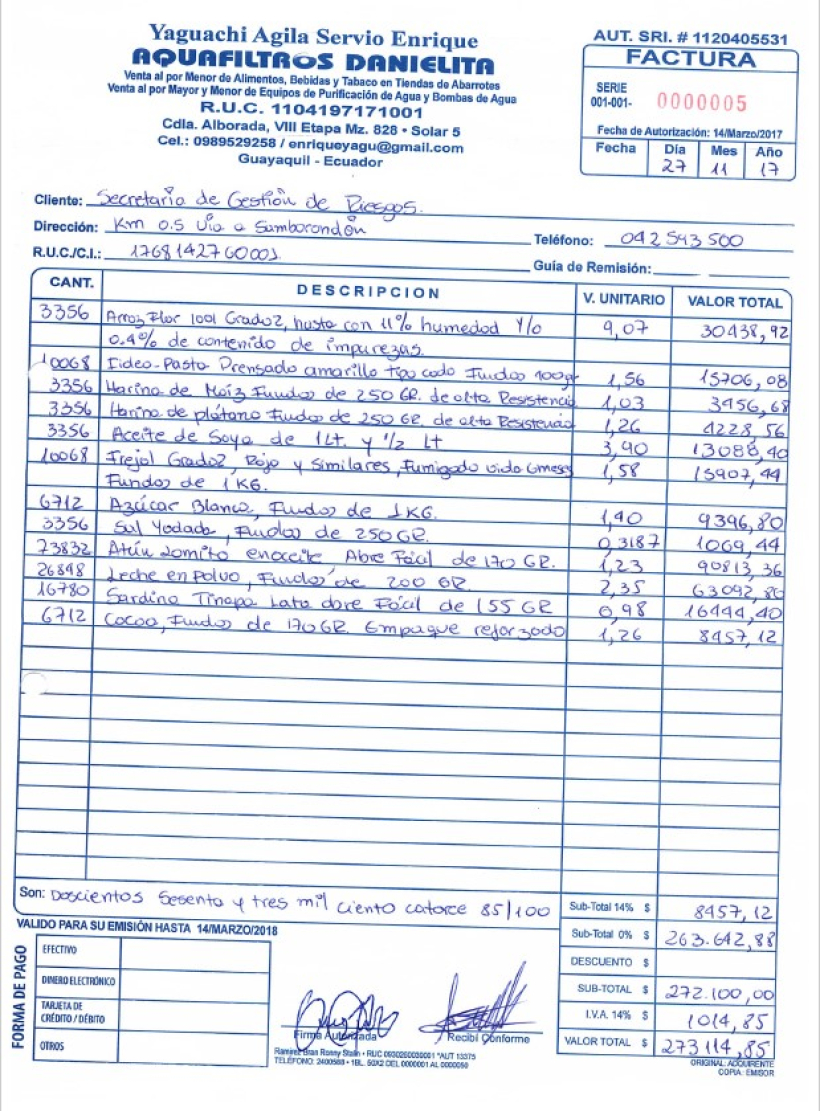 Yaguachi Agila Servio Enrique
AQUAFILTROS DANIELITA
Venta al por Menor de Alimentos, Bebidas y Tabaco en Tiendas de Abarrotes
Venta al por Mayor y Menor de Equipos de Purificación de Agua y Bombas de Agua
R.U.C. 1104197171001
Cdla. Alborada, VIII Etapa Mz. 828 • Solar 5
Cel.: 0989529258 / enriqueyagu@gmail.com
Guayaquil - Ecuador
AUT. SRI. # 1120405531
FACTURA
SERIE
001-001- 0000005
Fecha de Autorización: 14/Marzo/2017
Fecha Día Mes Año
27 11 17
Cliente: Secretaría de Gestión de Riesgos.
Dirección: Km 0.5 Vía a Samborondón
Teléfono: 042593500
R.U.C./C.I.: 1768142760001
Guía de Remisión:
CANT. DESCRIPCION V. UNITARIO VALOR TOTAL
3356 Arroz Flor 1001 Grado2, hasta con 11% humedad Y/o 9,07 30438,92
0.4% de contenido de impurezas.
10068 Fideo-Pasta Prensado amarillo tipo codo Fundas 400gr 1,56 15706,08
3356 Harina de Maíz Fundas de 250 GR. de alta Resistencia 1,03 3456,68
3356 Harina de plátano Fundas de 250 GR. de alta Resistencia 1,26 4228,56
3356 Aceite de Soya de 1Lt. y 1/2 Lt 3,90 13088,40
10068 Frejol Grado2, Rojo y Similares, Fumigado vida 6meses 1,58 15907,44
Fundas de 1KG.
6712 Azúcar Blanca, Fundas de 1KG. 1,40 9396,80
3356 Sal Yodada, Fundas de 250GR. 0,3187 1069,44
73832 Atún Lomito enaceite Abre Fácil de 170 GR. 1,23 90813,36
26848 Leche en Polvo, Fundas de 200 GR. 2,35 63092,80
16780 Sardina Tinapa Lata abre Fácil de 155 GR 0,98 16444,40
6712 Cocoa, Fundas de 170GR. Empaque reforzado 1,26 8457,12
Son: Doscientos Sesenta y tres mil ciento catorce 85/100
Sub-Total 14% $ 8457,12
Sub-Total 0% $ 263.642,88
DESCUENTO $
SUB-TOTAL $ 272.100,00
I.V.A. 14% $ 1014,85
VALOR TOTAL $ 273114,85
VALIDO PARA SU EMISIÓN HASTA 14/MARZO/2018
FORMA DE PAGO
EFECTIVO
DINERO ELECTRÓNICO
TARJETA DE
CRÉDITO / DÉBITO
OTROS
Firma Autorizada
Recibí Conforme
Ramírez Bran Ronny Stalin • RUC
TELÉFONO: 2400568 • 1BL. 50X2 DEL 0000001 AL 0000050
ORIGINAL: ADQUIRENTE
COPIA: EMISOR